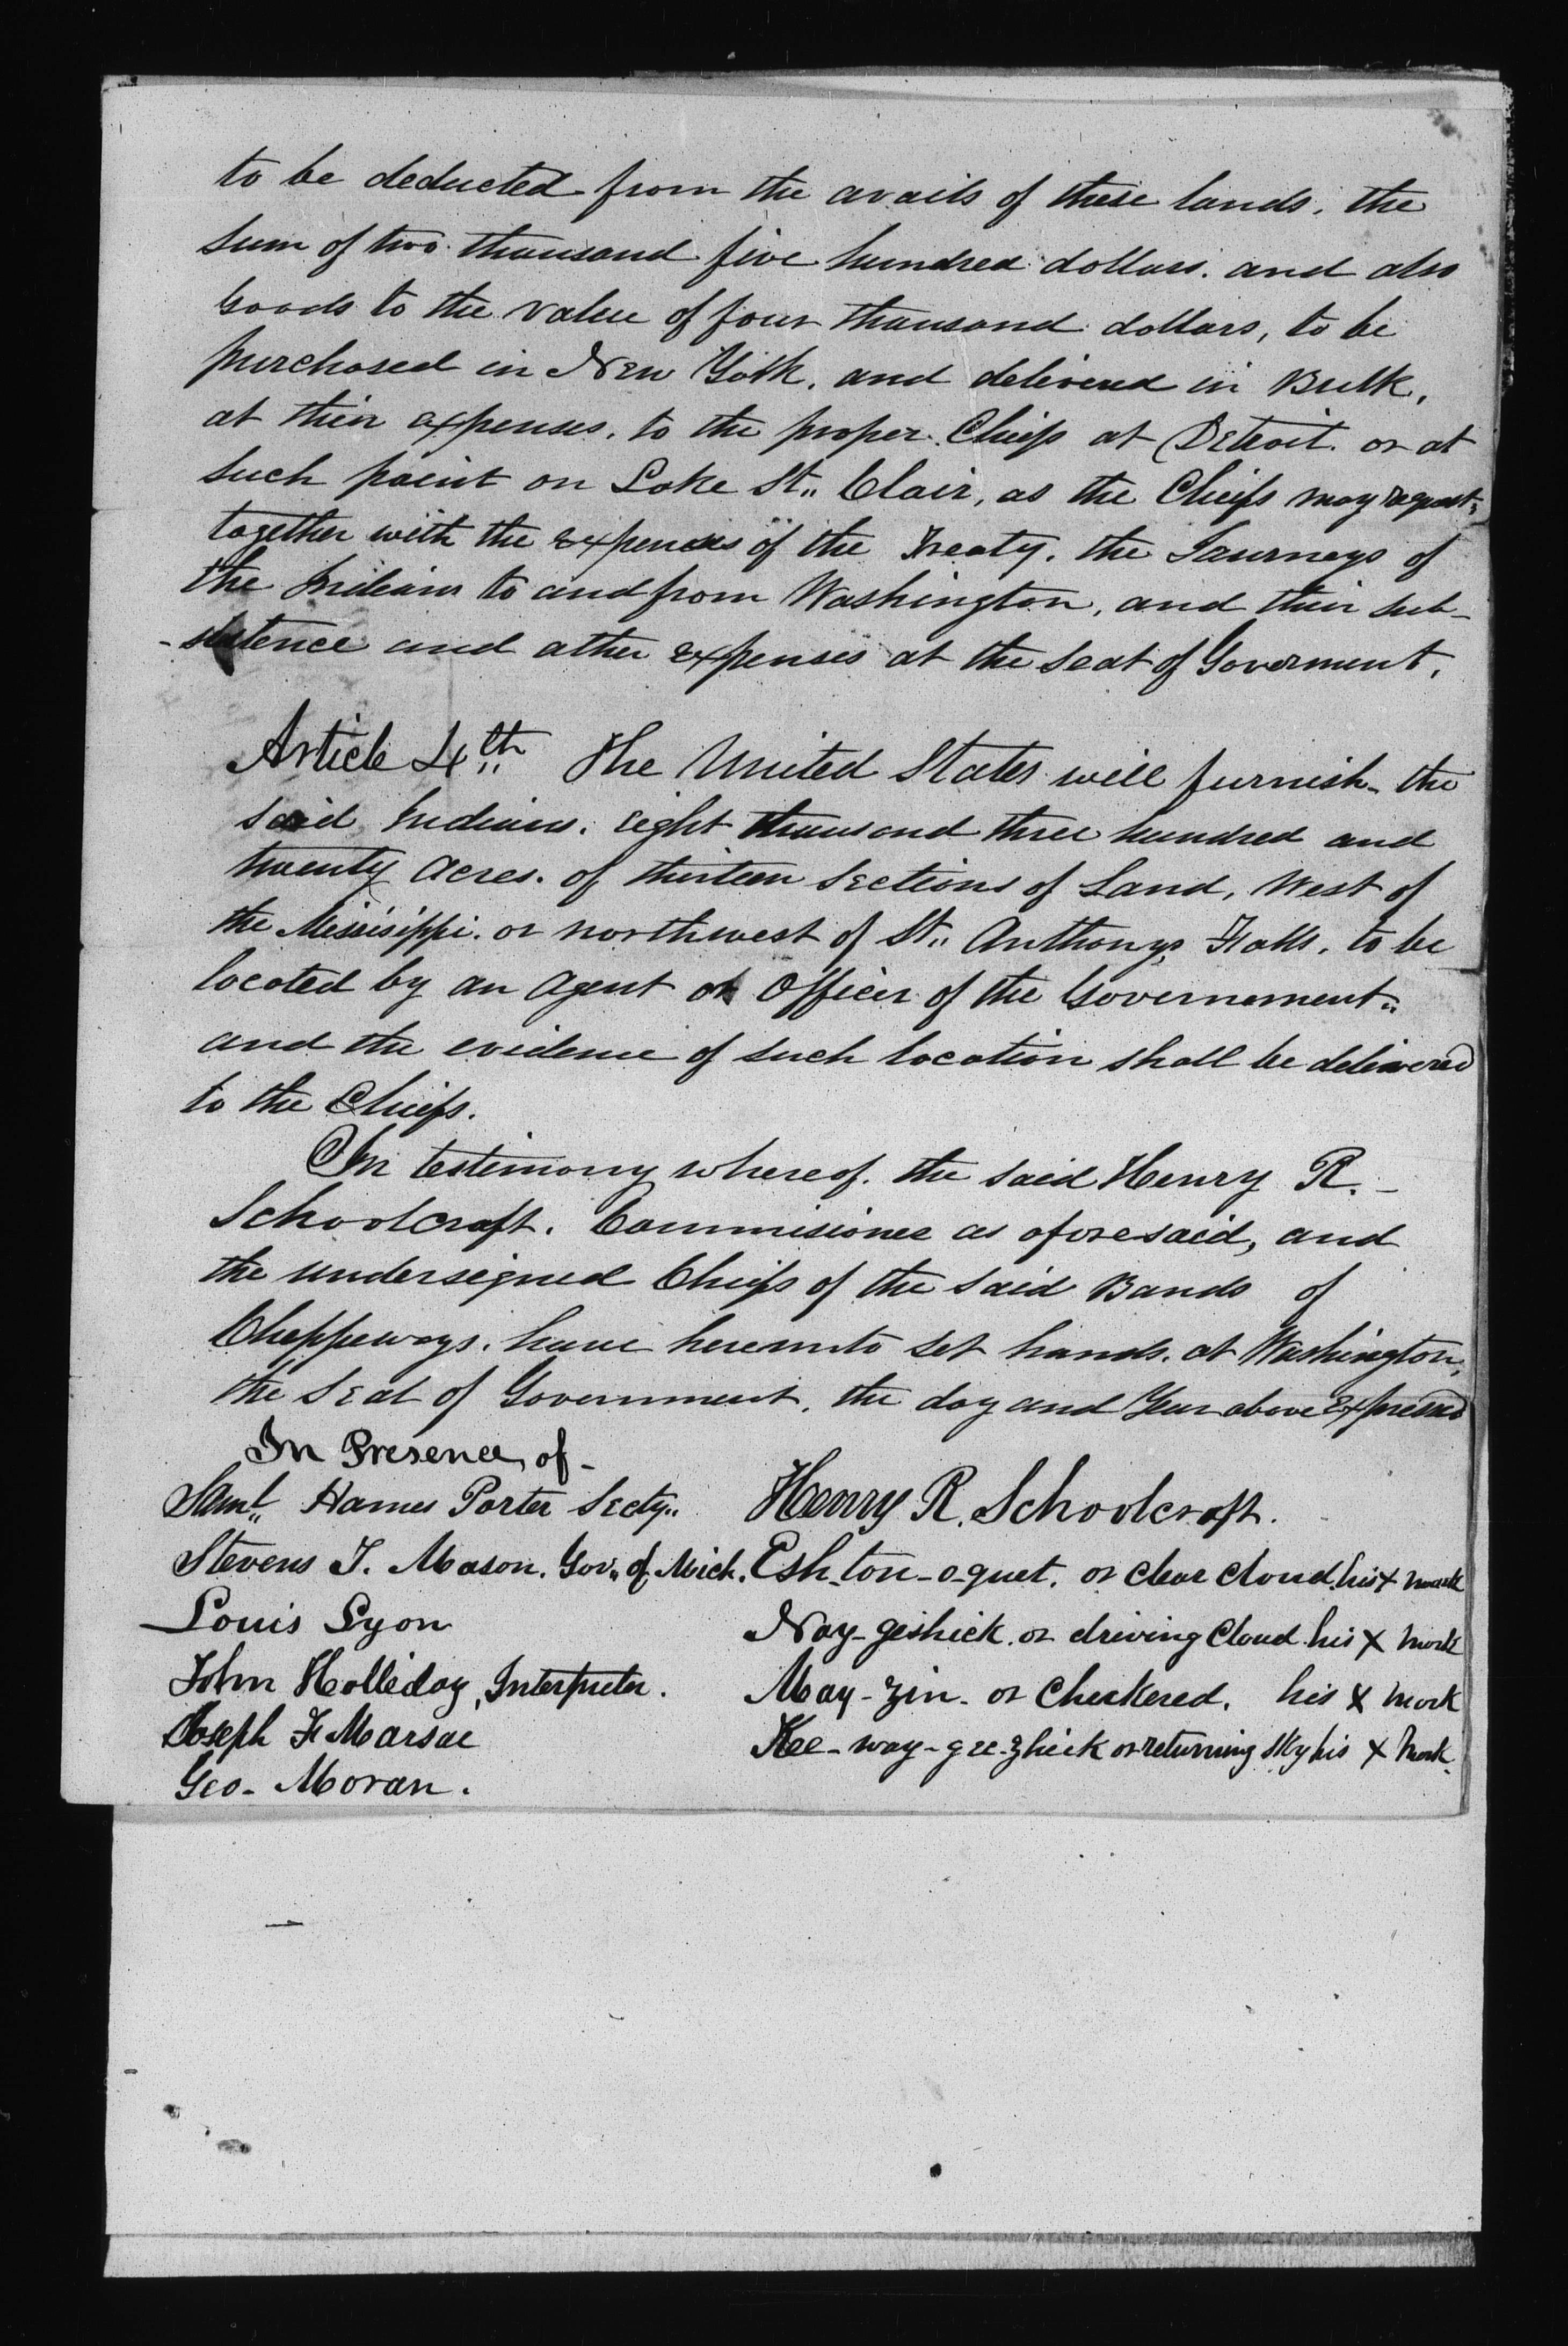 to be deducted from the avails of these lands, the
sum of two thousand five hundred dollars. and also
Goods to the value of four thousand dollars, to be
purchased in New York, and delivered in Bulk,
at their expenses, to the proper Chiefs at Detroit. or at
such point on Lake St,, Clair, as the Chiefs may request;
together with the expenses of the Treaty, the Journeys of
the Indians to and from Washington, and their sub-
-sistence and other expenses at the seat of Goverment.
Article 4th,, The United States will furnish the
said Indians, eight thousand three hundred and
twenty Acres. of thirteen Sections of Land, West of
the Missisippi. or northwest of St,, Anthonys Falls, to be
located by an Agent or Officer of the Governement,,
and the evidence of such location shall be delivered
to the Chiefs.
In testimony whereof. the said Henry R. -
Schoolcraft. Commisionee as aforesaid, and
the undersigned Chiefs of the said Bands of
Cheppeways, have hereunto set hands. at Washington,
the Seat of Government, the day and Year above Expressed
In Presence of -
Saml,, Hames Porter Secty,, Henry R. Schoolcraft.
Stevens T. Mason. Gov,, of Mich. Esh-ton-o-quet. or clear cloud. his x mark
Louis Lyon Nay-geshick. or driving Cloud his x mark
John Holliday, Interpreter. May-zin- or Checkered, his x mark
Joseph F Marsac Kee-way-gee-zhick or returning sky his x mark.
Geo- Moran.